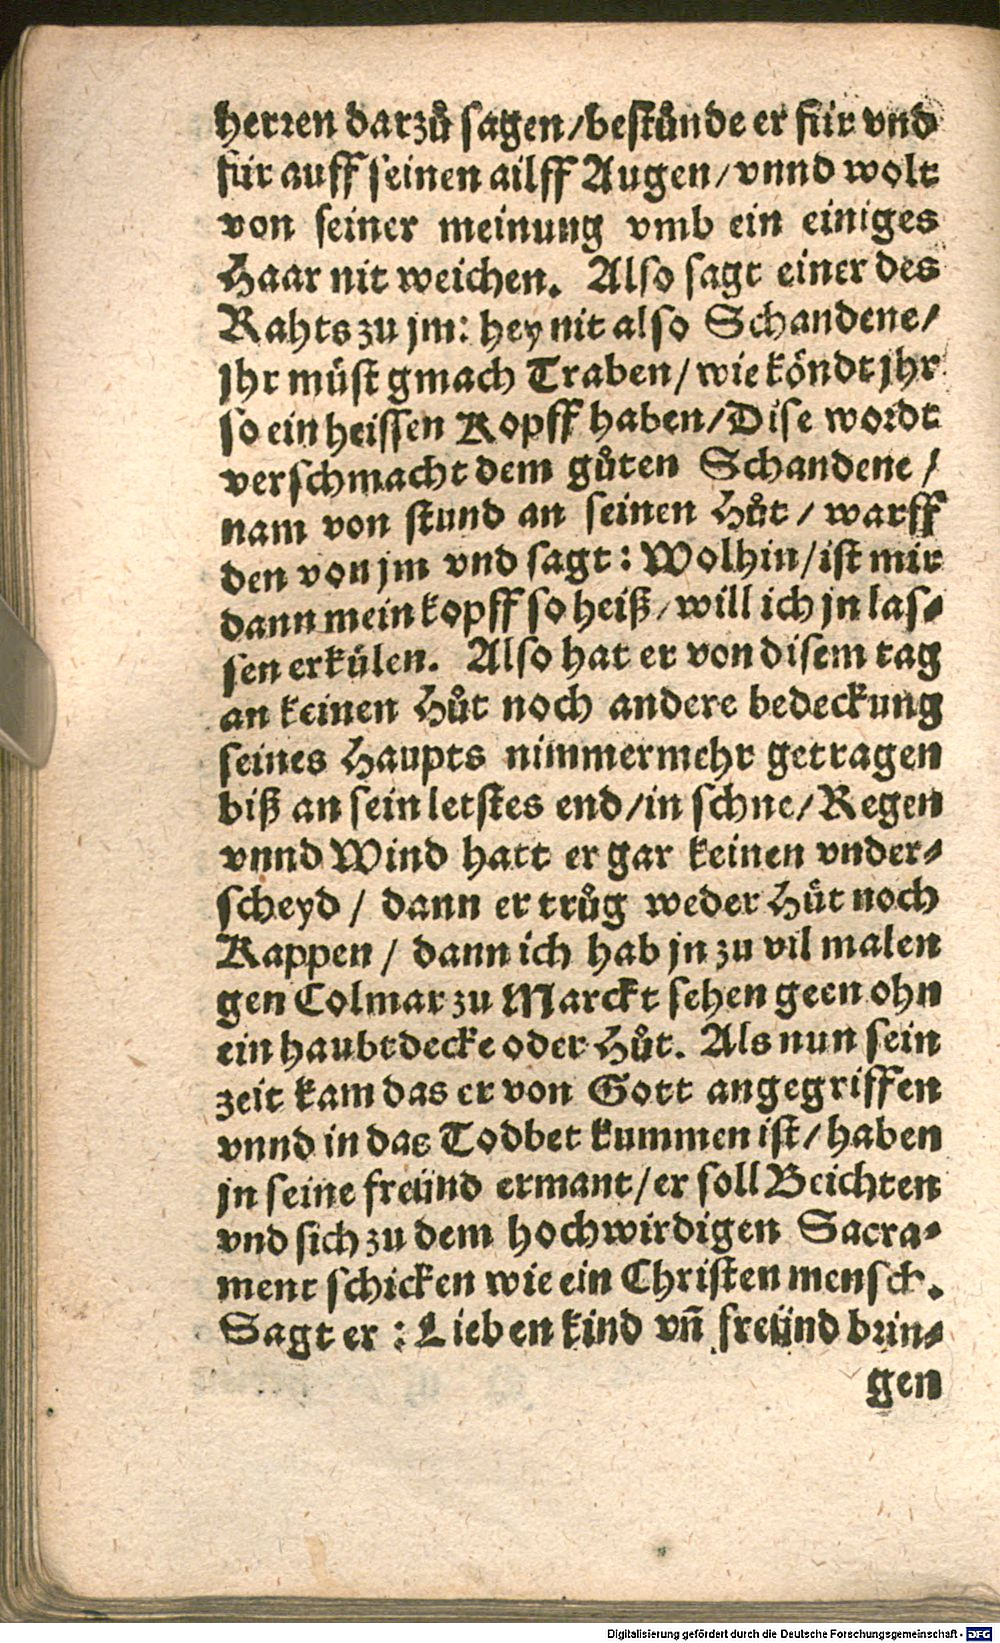 herren darzů sagen/bestůnde er für vnd
für auff seinen ailff Augen/vnnd wolt
von seiner meinung vmb ein einiges
Haar nit weichen. Also sagt einer des
Rahts zu jm: hey nit also Schandene/
jhr müst gmach Traben/wie köndt jhr
so ein heissen Kopff haben/Dise wordt
verschmacht dem gůten Schandene/
nam von stund an seinen Hůt/warff
den von jm vnd sagt: Wolhin/ist mir
dann mein kopff so heiß/will ich jn las-
sen erkülen. Also hat er von disem tag
an keinen Hůt noch andere bedeckung
seines Haupts nimmermehr getragen
biß an sein letstes end/in schne/Regen
vnnd Wind hatt er gar keinen vnder-
scheyd/dann er trůg weder Hüt noch
Kappen/dann ich hab jn zu vil malen
gen Colmar zu Marckt sehen geen ohn
ein haubtdecke oder Hůt. Als nun sein
zeit kam das er von Gott angegriffen
vnnd in das Todbet kummen ist/haben
jn seine freünd ermant/er soll Beichten
vnd sich zu dem hochwirdigen Sacra-
ment schicken wie ein Christen mensch.
Sagt er: Lieben kind vñ freünd brin-
gen
Digitalisierung gefördert durch die Deutsche Forschungsgemeinschaft - DFG